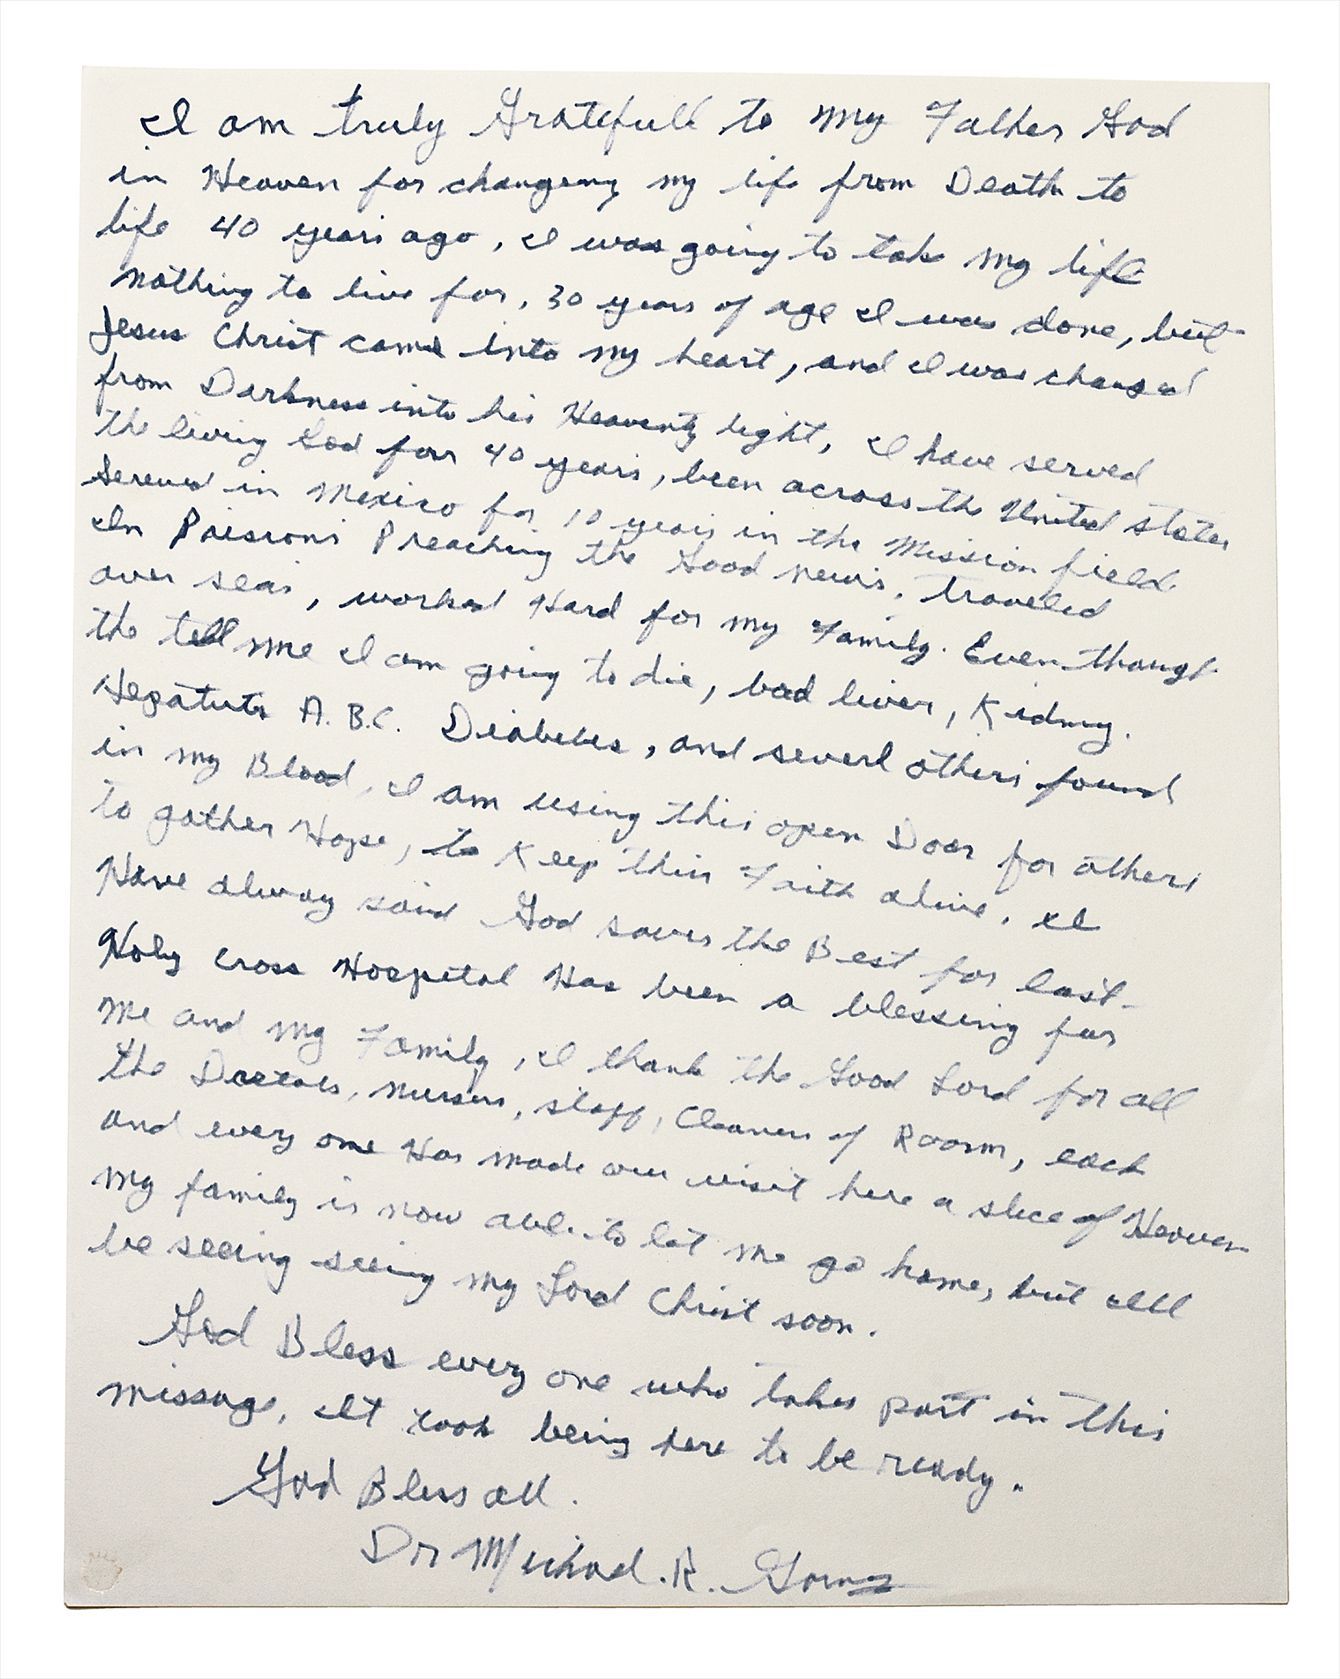 I am truly Gratefull to my Father God
in Heaven for changeing my life from Death to
life 40 years ago, I was going to take my life
nothing to live for, 30 years of age I was done, but
Jesus Christ came into my heart, and I was changed
from Darkness into his Heavenly light, I have served
the living God for 40 years, been across the United states
Served in Mexico for 10 years in the Mission field
In Prisions Preaching the Good news, traveled
over seas, worked Hard for my Family. Even though
the tell me I am going to die, bad liver, Kidney.
A.B.C. Diabetes, and severl others found
in my Blood, I am using this open Door for others
to gather Hope, to Keep thin Faith alive. I
Have alway said God saves the Best for last
Holy Cross Hospital Has been a blessing for
me and my Family, I thank the Good Lord for all
the Doctors, nurses, staff, Cleaners of Room, each
and every one Has made our visit here a slice of Heaven
my family is now able to let me go home, but Ill
be seeing seeing my Lord Christ soon.
God Bless every one who takes part in this
message, It took being here to be ready.
God Bless all.
Dr Michael. R.